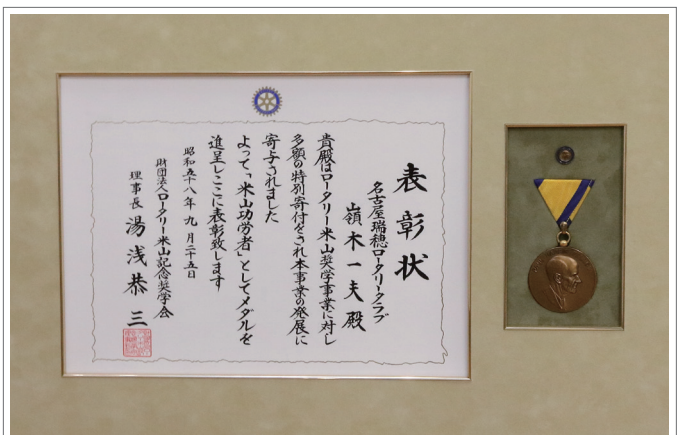 表彰状
名古屋瑞穂ロータリークラブ
嶺木一夫殿
貴殿はロータリー米山奨学事業に対し
多額の特別寄付をされ本事業の発展に
寄与されました
よって「米山功労者」としてメダルを
進呈しここに表彰致します
昭和五十八年九月二十五日
財団法人ロータリー米山記念奨学会
理事長 湯浅恭三